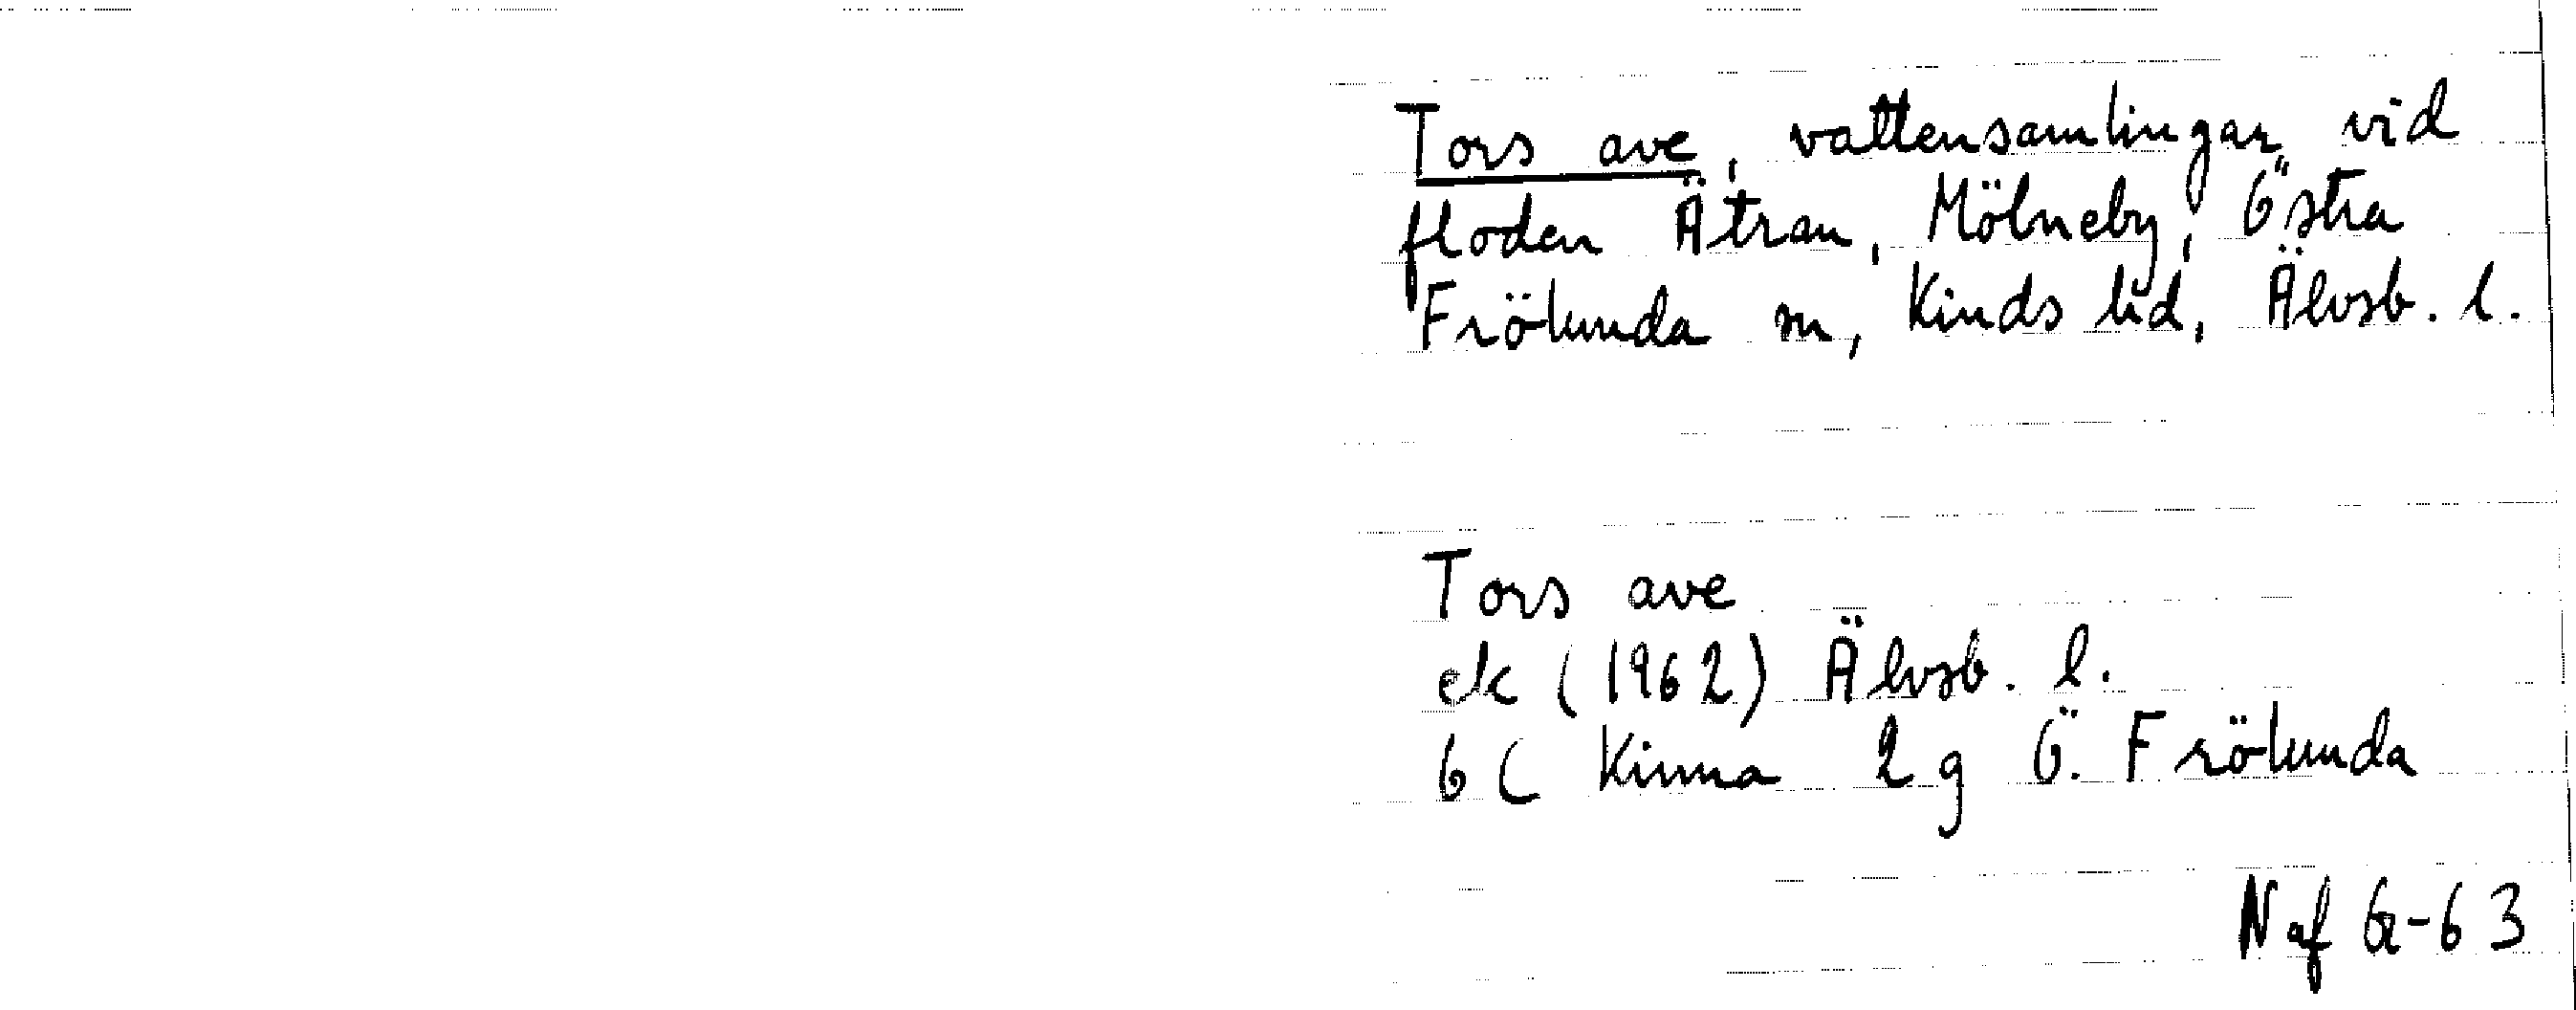 Tors ave, vattensamlingar vid
floden Ätran, Mölneby, Östra
Frölunda sn, Kinds hd, Älvsb. l.
Tors ave
ek (1962) Älvsb. l.
6C Kinna 2 g Ö. Frölunda
N af 62-63